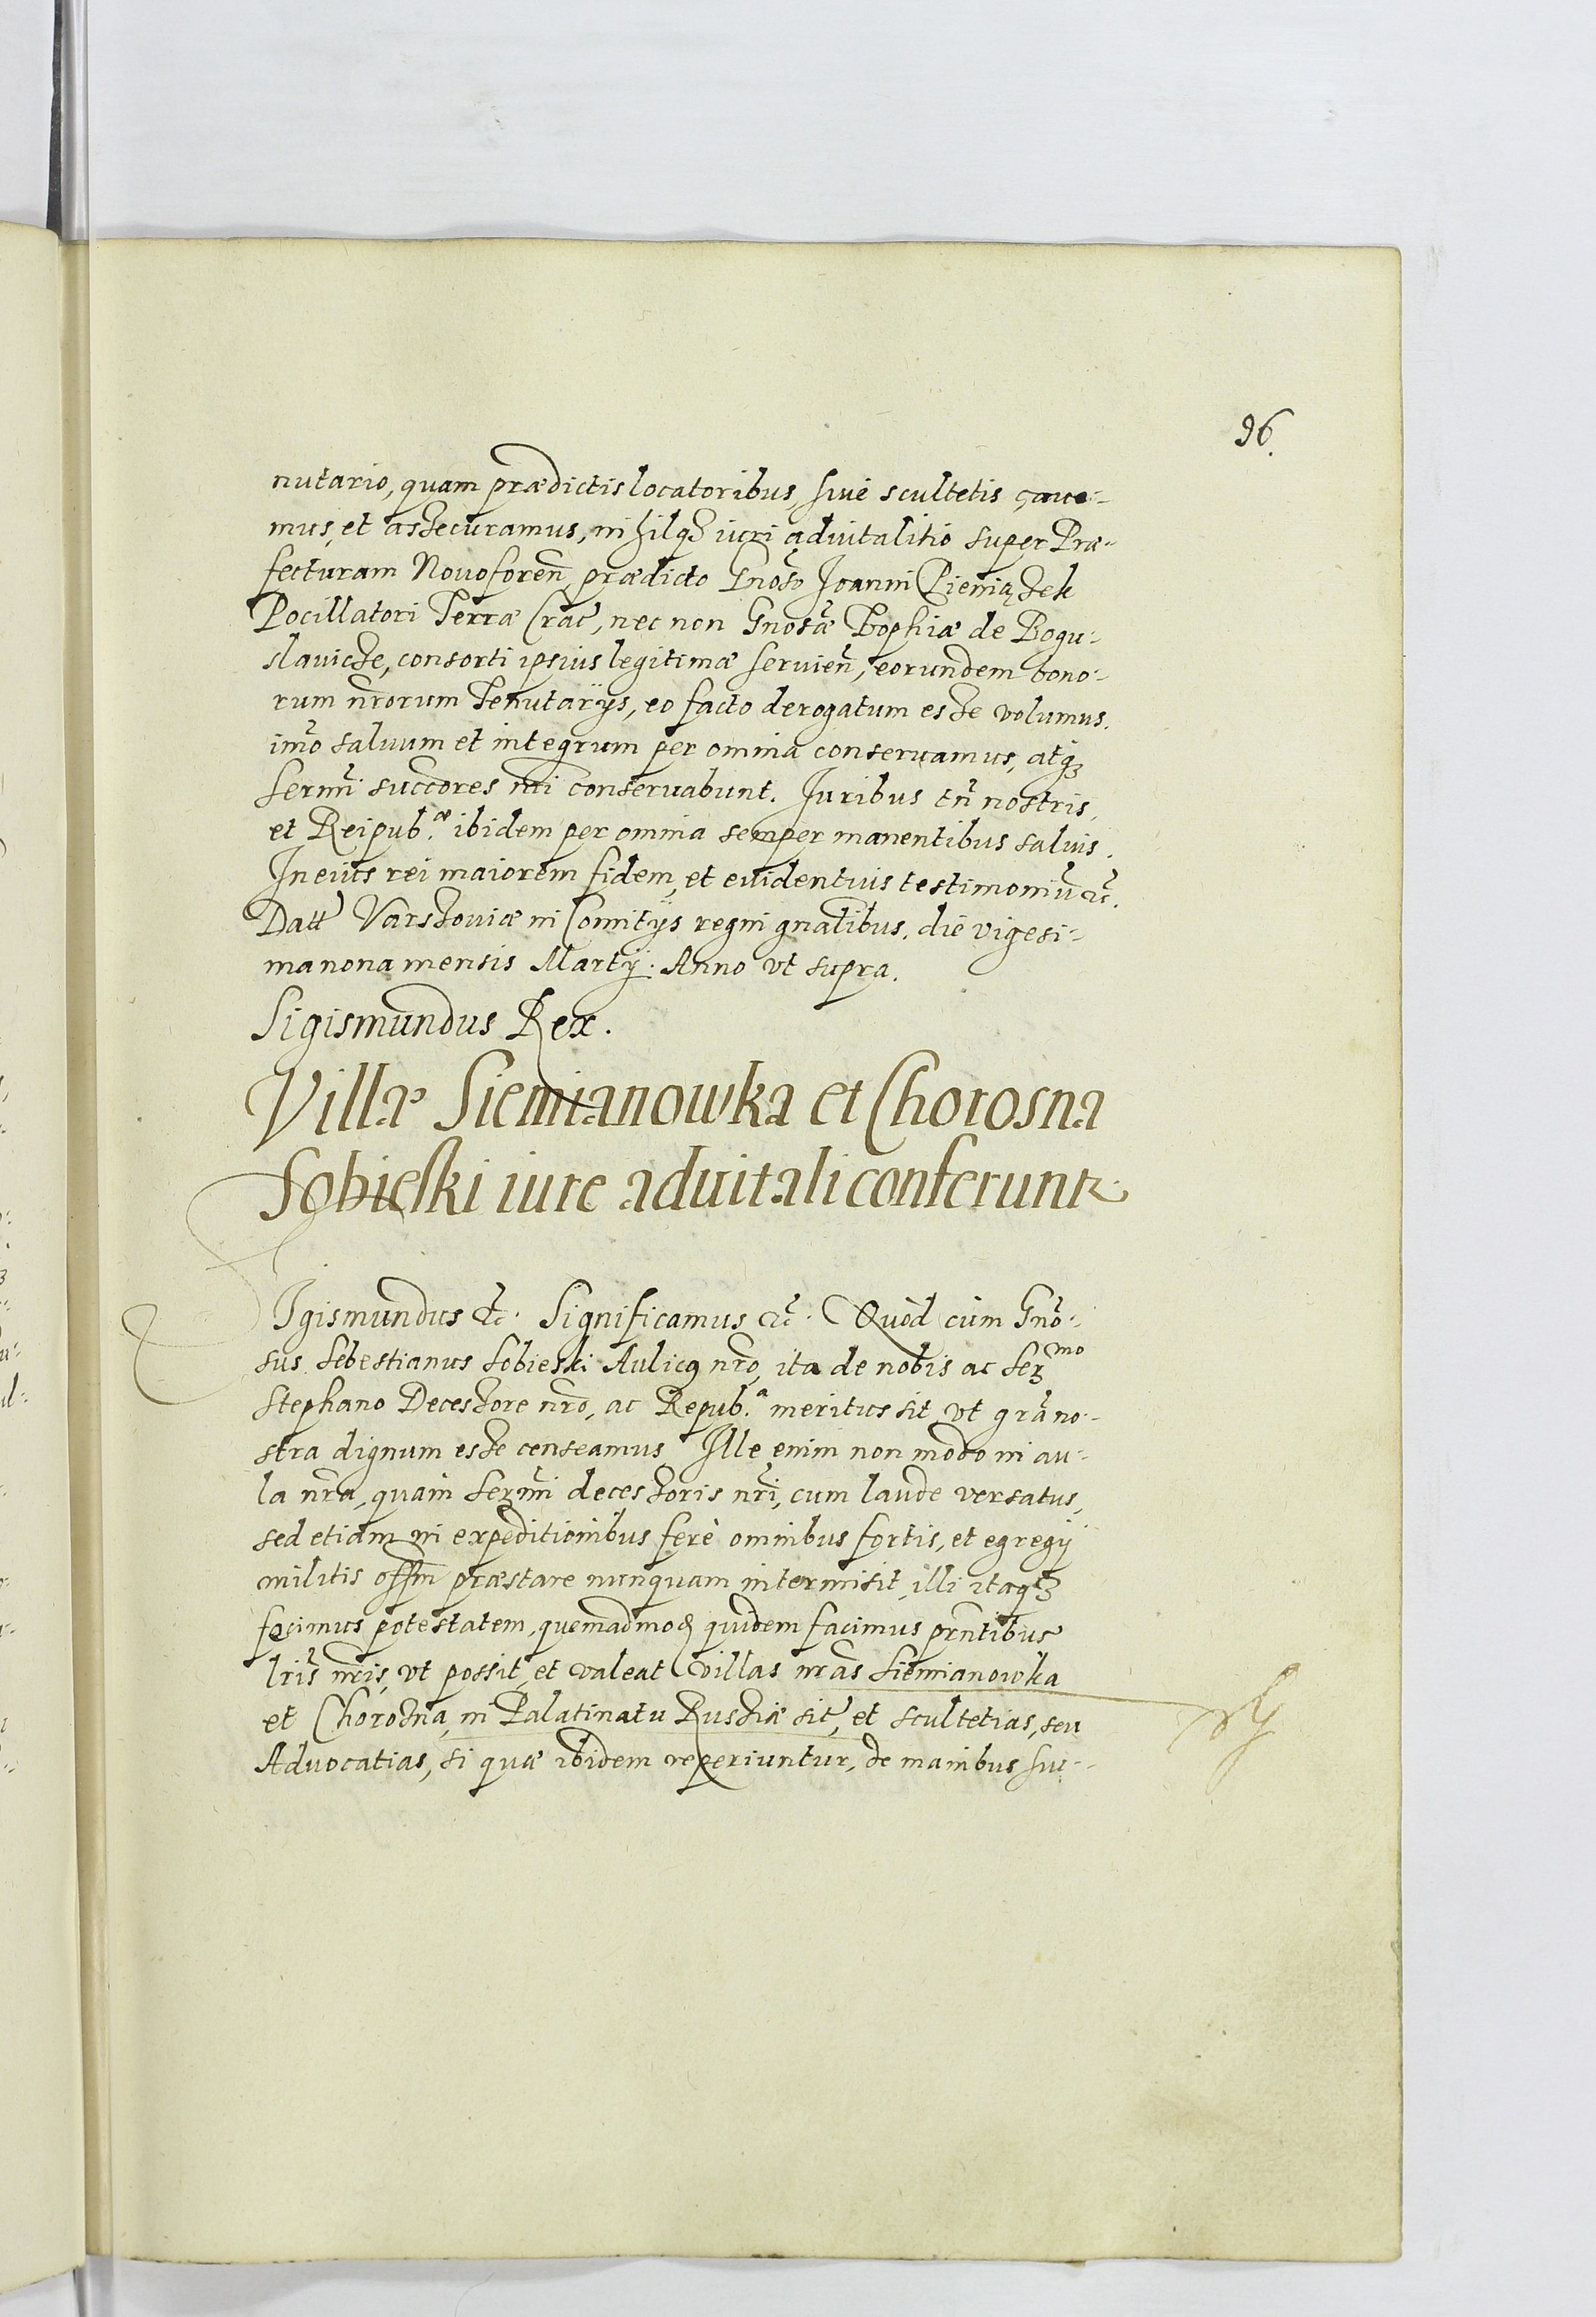 96.
nutario, quam prædictis locatoribus, siue scultetis caue-
mus, et assecuramus, nihilq3 iuri aduitalitio super Præ-
fecturam Nouoforeñ, prædicto Gnoso Joanni Pieniązek
Pocillatori Terræ Crac, nec non Gnosæ Zophiæ de Bogu-
slauicze, consorti ipsius legitimæ seruieñ, eorundem bono-
rum nrorum Tenutarÿs, eo facto derogatum esse volumus.
imo saluum et integrum per omnia conseruamus, atq3
sermi succores nri conseruabunt. Juribus tñ nostris,
et Reipub.æ ibidem per omnia semper manentibus saluis.
In euiꝰ rei maiorem fidem, et euidentius testimoniũ &c.
Datt Varssouiæ in Comitÿs regni gnalibus, die vigesi-
ma nona mensis Martÿ. Anno vt supra.
Sigismundus Rex.
Villæ Siemianowka et Chorosna
Sobieski iure aduitali conferuntr
Igismundus &c. Significamus &c. Quòd cùm Gnõ-
sus Sebestianus Sobieski Aulicꝰ nro, ita de nobis ac Sermo
Stephano Decessore nro, ac Repub.a meritus sit, vt gra no-
stra dignum esse censeamus Ille enim non modo in au-
la nra, quàm sermi decessoris nri, cum laude versatus,
sed etiam in expeditionibus ferè omnibus fortis, et egregÿ
militis offm præstare nunquam intermisit, illi itaq3
fecimus potestatem, quemadmod quidem facimus prntibus
lris nris, vt possit, et valeat villas nras Siemianowka
et Chorosna, in Palatinatu Russiæ sit, et scultetias, seu
Aduocatias, si quæ ibidem reperiuntur, de manibus suc-